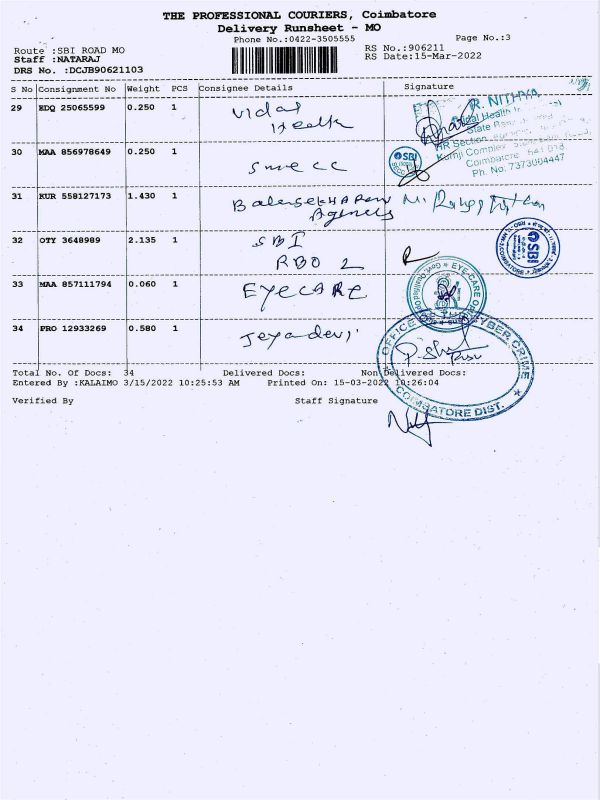 THE PROFESSIONAL COURIERS, Coimbatore
Delivery Runsheet - MO
Phone No.:0422-3505555
Page No.:3
Route :SBI ROAD MO
RS No.:906211
Staff :NATARAJ
RS Date:15-Mar-2022
DRS No. :DCJB90621103
S No Consignment No Weight PCS Consignee Details Signature
29 EDQ 25065599 0.250 1 Vidal
Health
R. NITHYA
Vidal Health
State
HR Section
Kumji Complex
Coimbatore 641 018.
Ph. No. 7373004447
30 MAA 856978649 0.250 1 SMECC
SBI
31 KUR 558127173 1.430 1 Balasekharan
Agencies
32 OTY 3648989 2.135 1 SBI
RBO 2
SBI
COIMBATORE
33 MAA 857111794 0.060 1 EYECARE
EYE-CARE
34 PRO 12933269 0.580 1 Jeyadevi
OFFICE CYBER CRIME
COIMBATORE DIST.
Total No. Of Docs: 34 Delivered Docs: Non Delivered Docs:
Entered By :KALAIMO 3/15/2022 10:25:53 AM Printed On: 15-03-2022 10:26:04
Verified By Staff Signature